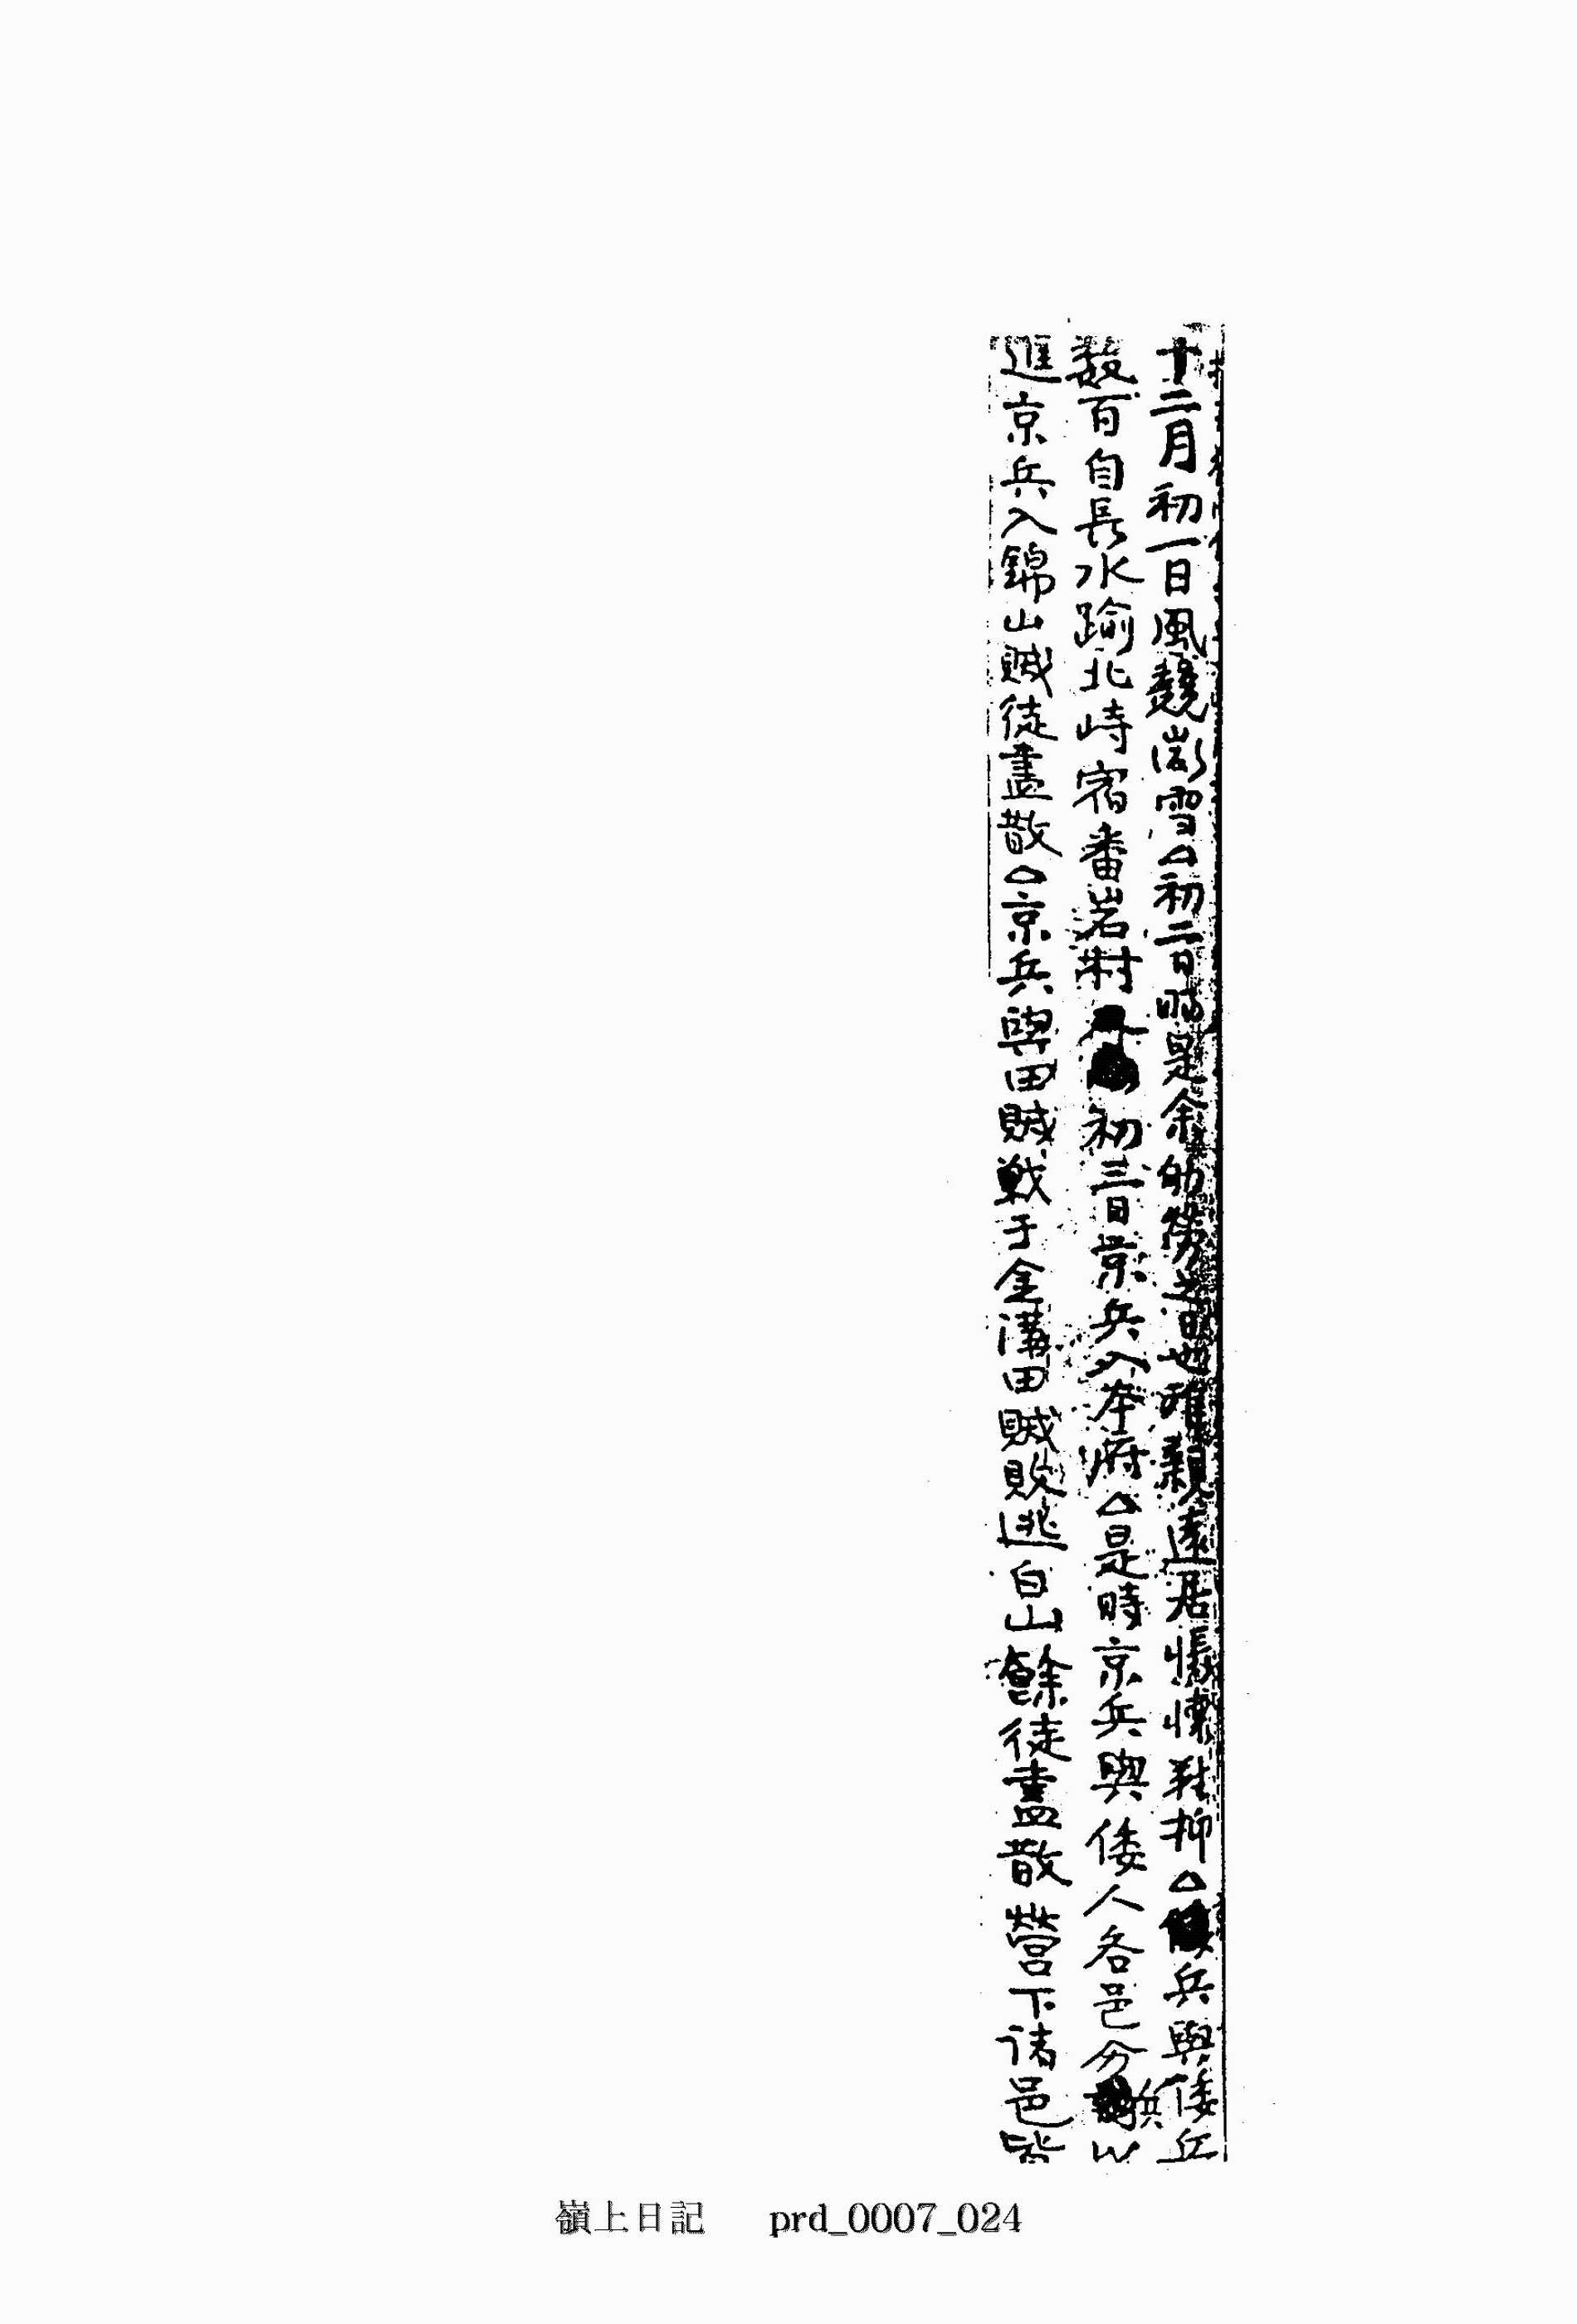 十二月初一日風競微雪△初二日時是余劬勞之日也雖親遠居悵懷難抑△兵與倭兵
数百自長水踰北峙宿番岩村初三日京兵入本府△是時京兵與倭人各邑分兵以
進京兵入錦山賊徒盡散△京兵與田賊戰于金溝田賊敗逃白山餘徒盡散營下諸邑皆
嶺上日記 prd_0007_024